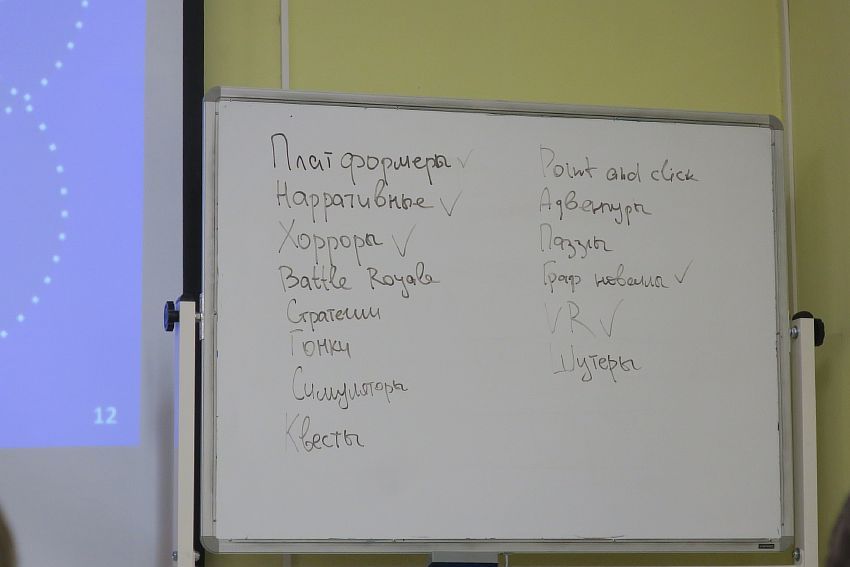 Платформеры ✓
Нарративные ✓
Хорроры ✓
Battle Royale
Стратегии
Гонки
Симуляторы
Квесты
Point and click
Адвенчуры
Паззлы
Граф новеллы ✓
VR ✓
Шутеры
12